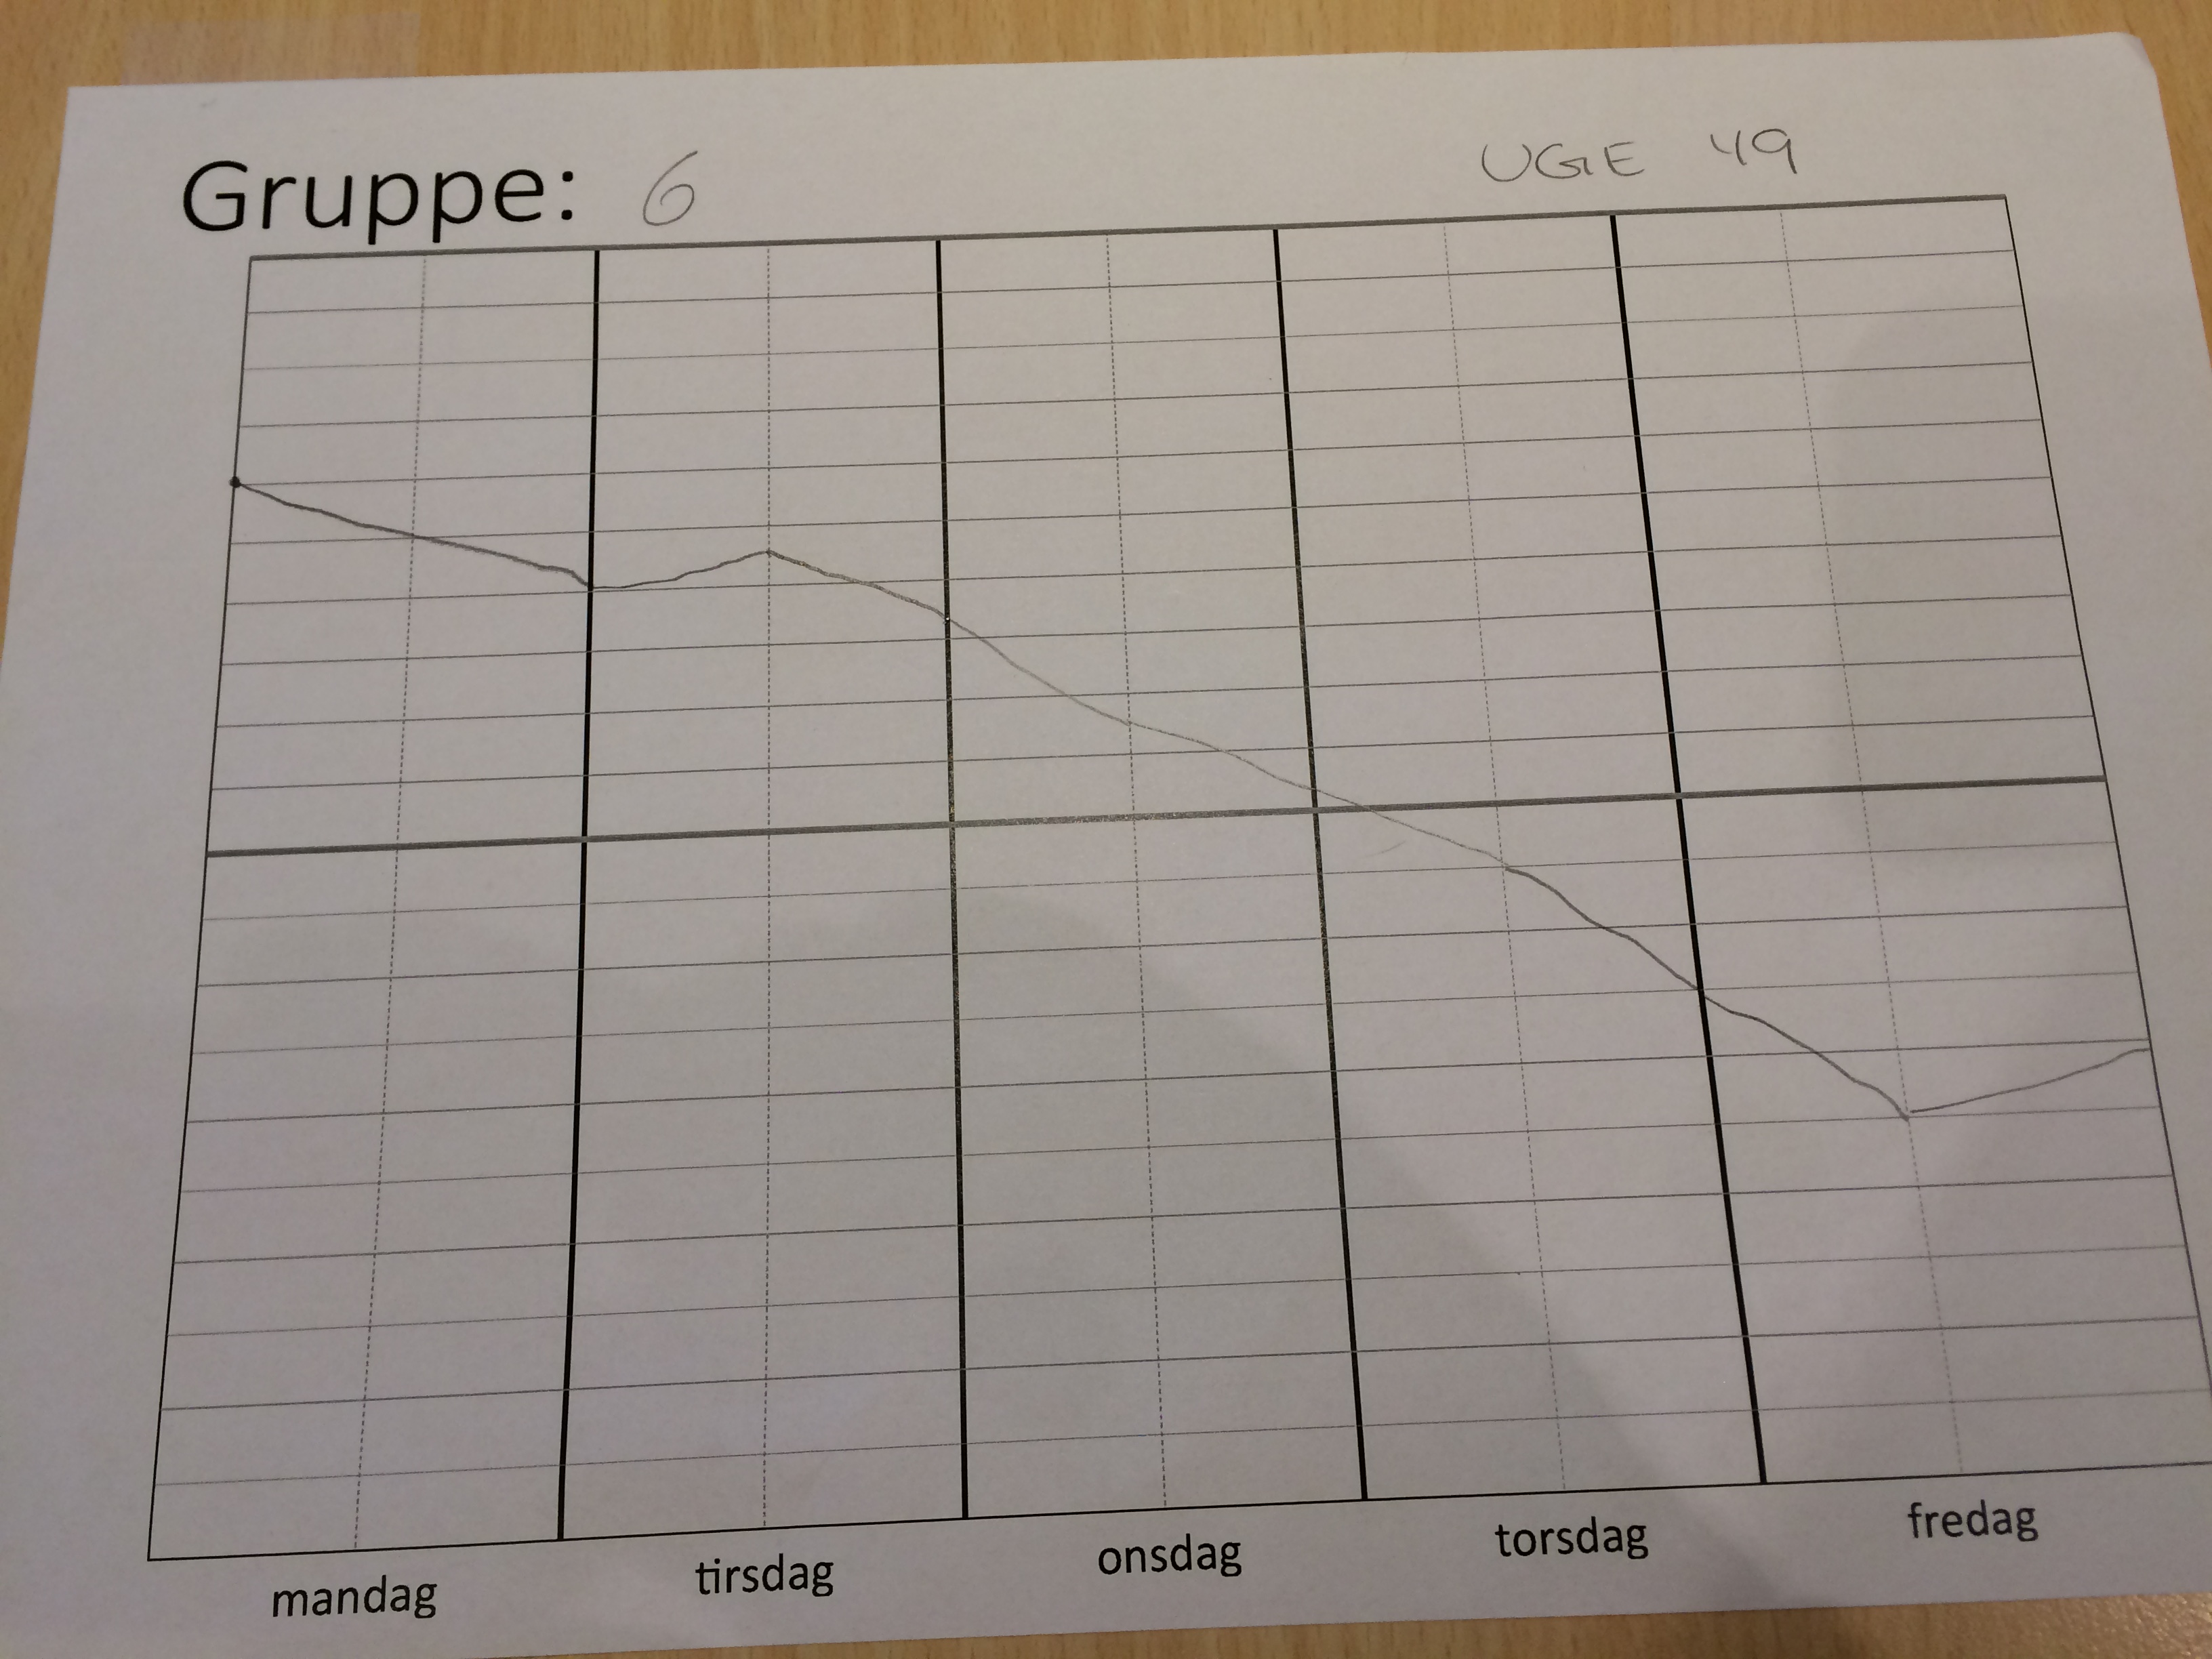 Gruppe: 6
UGE 49
mandag
tirsdag
onsdag
torsdag
fredag